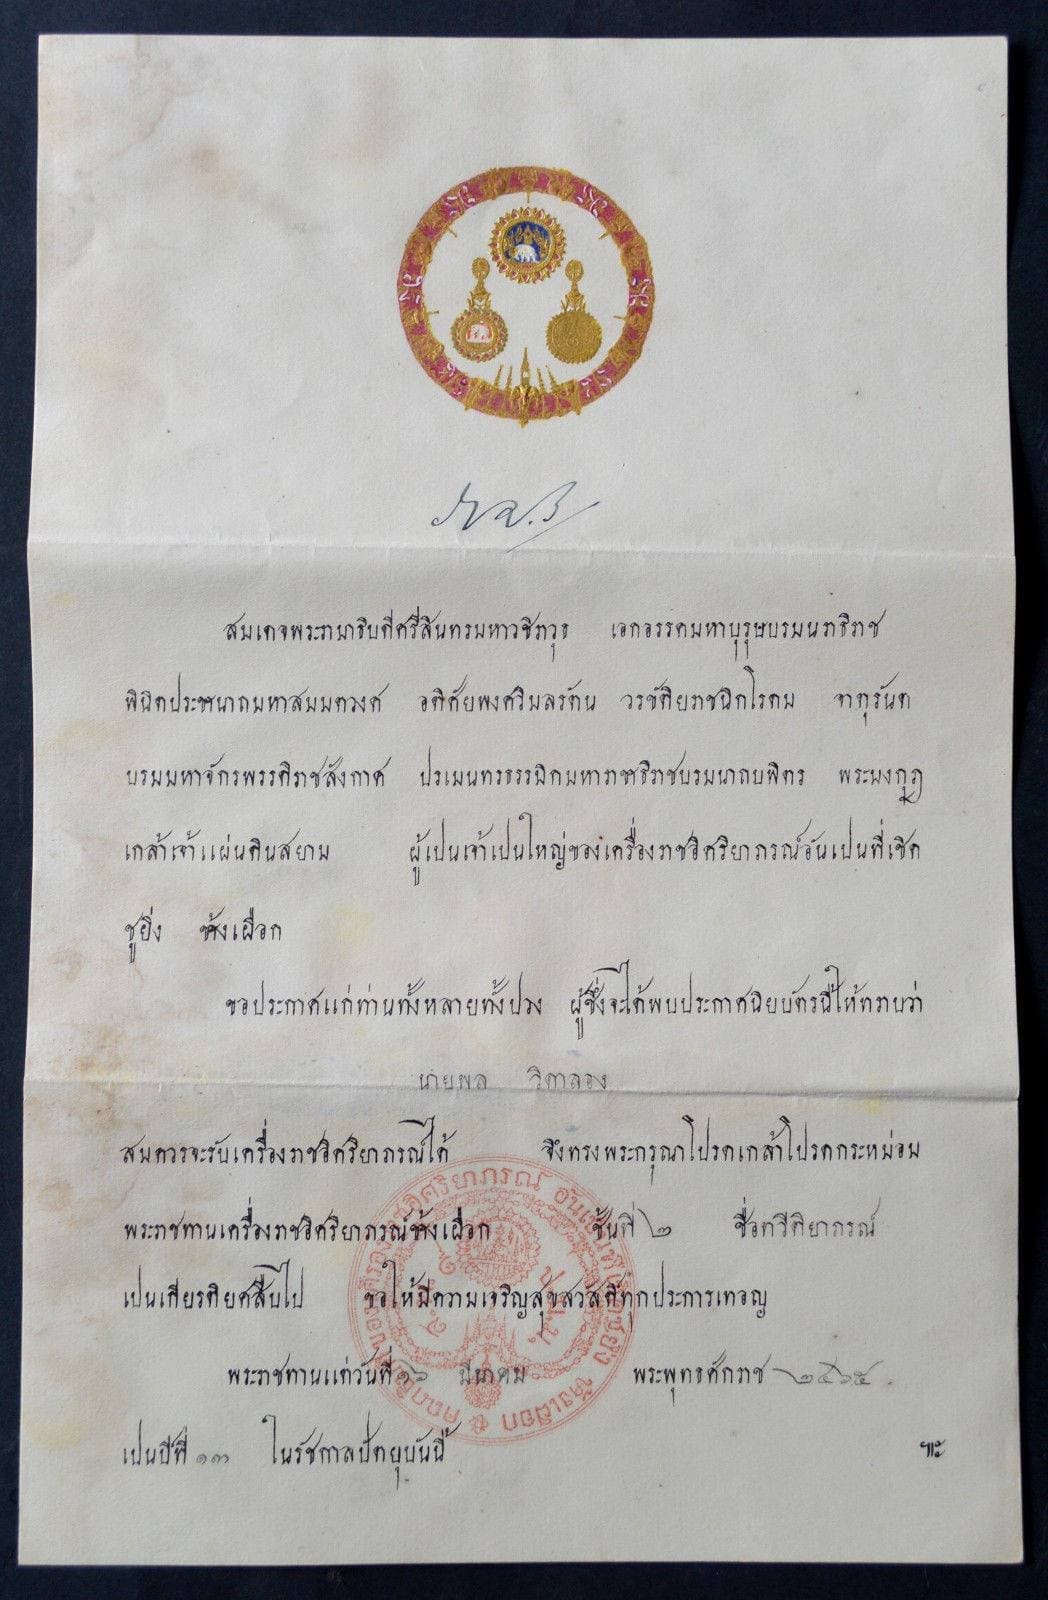 สมเดจพระรามาธิบดีศรีสินทรมหาวชิราวุธ เอกอรรคมหาบุรุษบรมนราธิราช
พินิตประชานาถมหาสมมตวงศ อดิศัยพงศวิมลรัตน วรขัติยราชนิกโรดม จาตุรันต
บรมมหาจักรพรรดิราชสังกาศ ปรเมนทรธรรมิกมหาราชาธิราชบรมนาถบพิตร พระมงกุฎ
เกล้าเจ้าแผ่นดินสยาม ผู้เปนเจ้าเปนใหญ่ของเครื่องราชอิศริยาภรณ์อันเปนที่เชิด
ชูยิ่ง ช้างเผือก
ขอประกาศแก่ท่านทั้งหลายทั้งปวง ผู้ซึ่งจะได้พบประกาศนิยบัตรนี้ให้ทราบว่า
นายพล วิตาลอง
สมควรจะรับเครื่องราชอิศริยาภรณ์ได้ จึงทรงพระกรุณาโปรดเกล้าโปรดกระหม่อม
พระราชทานเครื่องราชอิศริยาภรณ์ช้างเผือก ชั้นที่ ๒ ชื่อทวีติยาภรณ์
เปนเกียรติยศสืบไป ขอให้มีความเจริญสุขสวัสดีทุกประการเทอญ
พระราชทานแต่วันที่ ๑๖ มีนาคม พระพุทธศักราช ๒๔๖๕
เปนปีที่ ๑๓ ในรัชกาลปัตยุบันนี้ ๚ะ